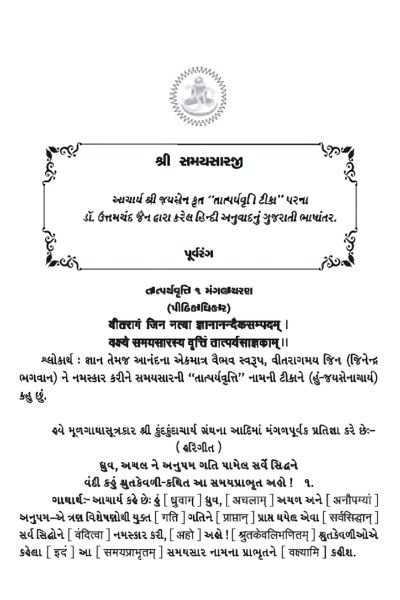 શ્રી સમયસારજી
આચાર્ય શ્રી જયસેન કૃત “તાત્પર્યવૃત્તિ ટીકા” પરના
ડૉ. ઉત્તમચંદ જૈન દ્વારા કરેલ હિન્દી અનુવાદનું ગુજરાતી ભાષાંતર.
પૂર્વરંગ
તાત્પર્યવૃત્તિ ૧ મંગલાચરણ
(પીઠિકાધિકાર)
वीतरागं जिन नत्वा ज्ञानानन्दैकसम्पदम् ।
वक्ष्ये समयसारस्य वृत्तिं तात्पर्यसाज्ञकाम् ।।
શ્લોકાર્થ : જ્ઞાન તેમજ આનંદના એકમાત્ર વૈભવ સ્વરૂપ, વીતરાગમય જિન (જિનેન્દ્ર
ભગવાન) ને નમસ્કાર કરીને સમયસારની “તાત્પર્યવૃત્તિ” નામની ટીકાને (હું-જયસેનાચાર્ય)
કહુ છું.
હવે મૂળગાથાસૂત્રકાર શ્રી કુંદકુંદાચાર્ય ગ્રંથના આદિમાં મંગળપૂર્વક પ્રતિજ્ઞા કરે છેઃ-
(હરિગીત)
ધ્રુવ, અચલ ને અનુપમ ગતિ પામેલ સર્વે સિદ્ધને
વંદી કહું શ્રુતકેવળી-કથિત આ સમયપ્રાભૂત અહો ! ૧.
ગાથાર્થ:- આચાર્ય કહે છેઃ હું [ ध्रुवाम् ] ધ્રુવ, [ अचलाम् ] અચળ અને [ अनौपम्यां ]
અનુપમ-એ ત્રણ વિશેષણોથી યુક્ત [ गति ] ગતિને [ प्राप्तान् ] પ્રાપ્ત થયેલ એવા [ सर्वसिद्धान् ]
સર્વ સિદ્ધોને [ वंदित्वा ] નમસ્કાર કરી, [ अहो ] અહો ! [ श्रुतकेवलिभणितम् ] શ્રુતકેવળીઓએ
કહેલા [ इदं ] આ [ समयप्राभृतम् ] સમયસાર નામના પ્રાભૂતને [ वक्ष्यामि ] કહીશ.